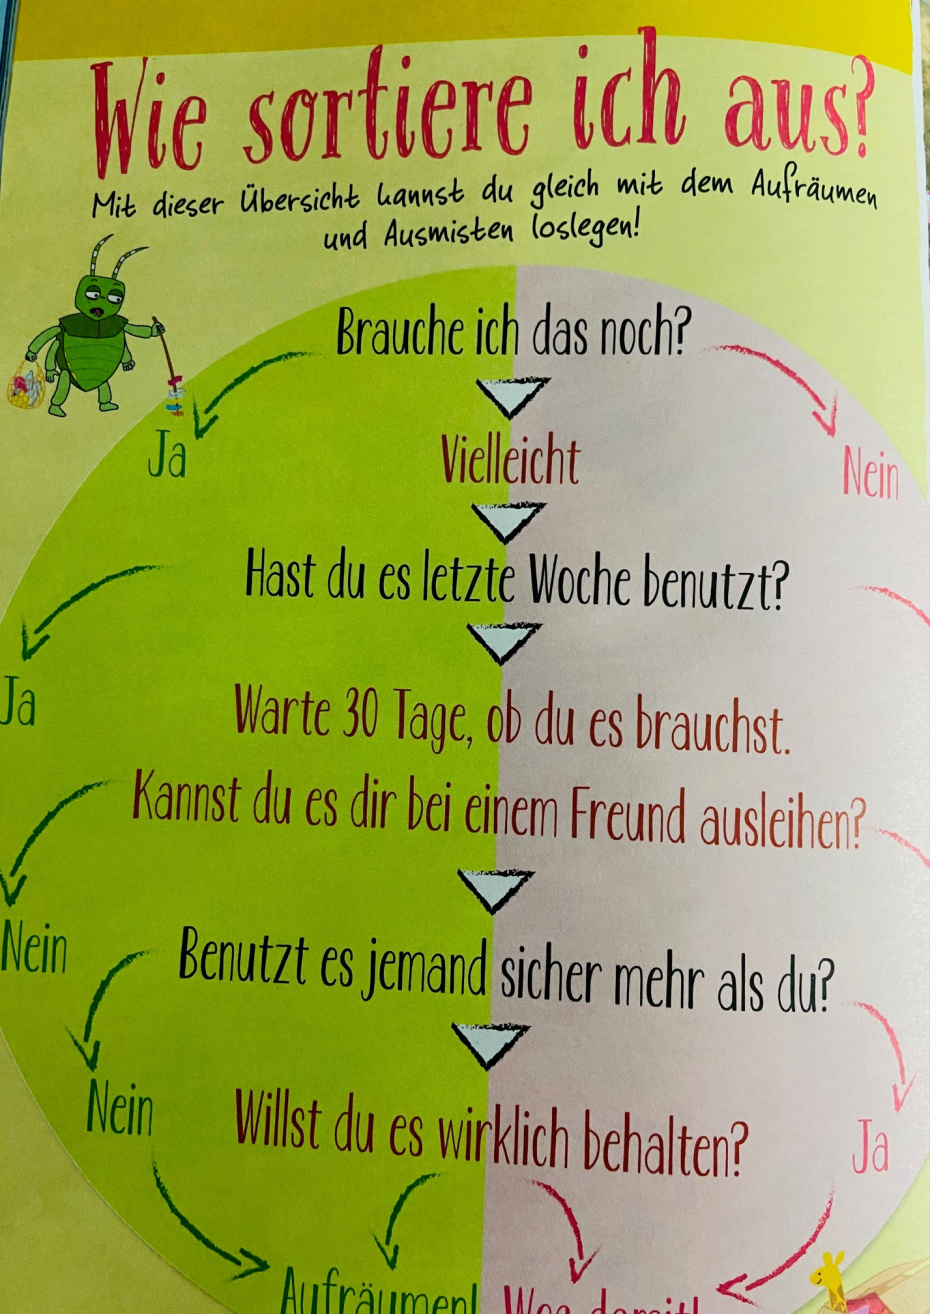 Wie sortiere ich aus?
Mit dieser Übersicht kannst du gleich mit dem Aufräumen
und Ausmisten loslegen!
Brauche ich das noch?
Ja
Vielleicht
Nein
Hast du es letzte Woche benutzt?
Ja
Warte 30 Tage, ob du es brauchst.
Kannst du es dir bei einem Freund ausleihen?
Nein
Benutzt es jemand sicher mehr als du?
Nein
Willst du es wirklich behalten?
Ja
Aufräumen!
Weg damit!